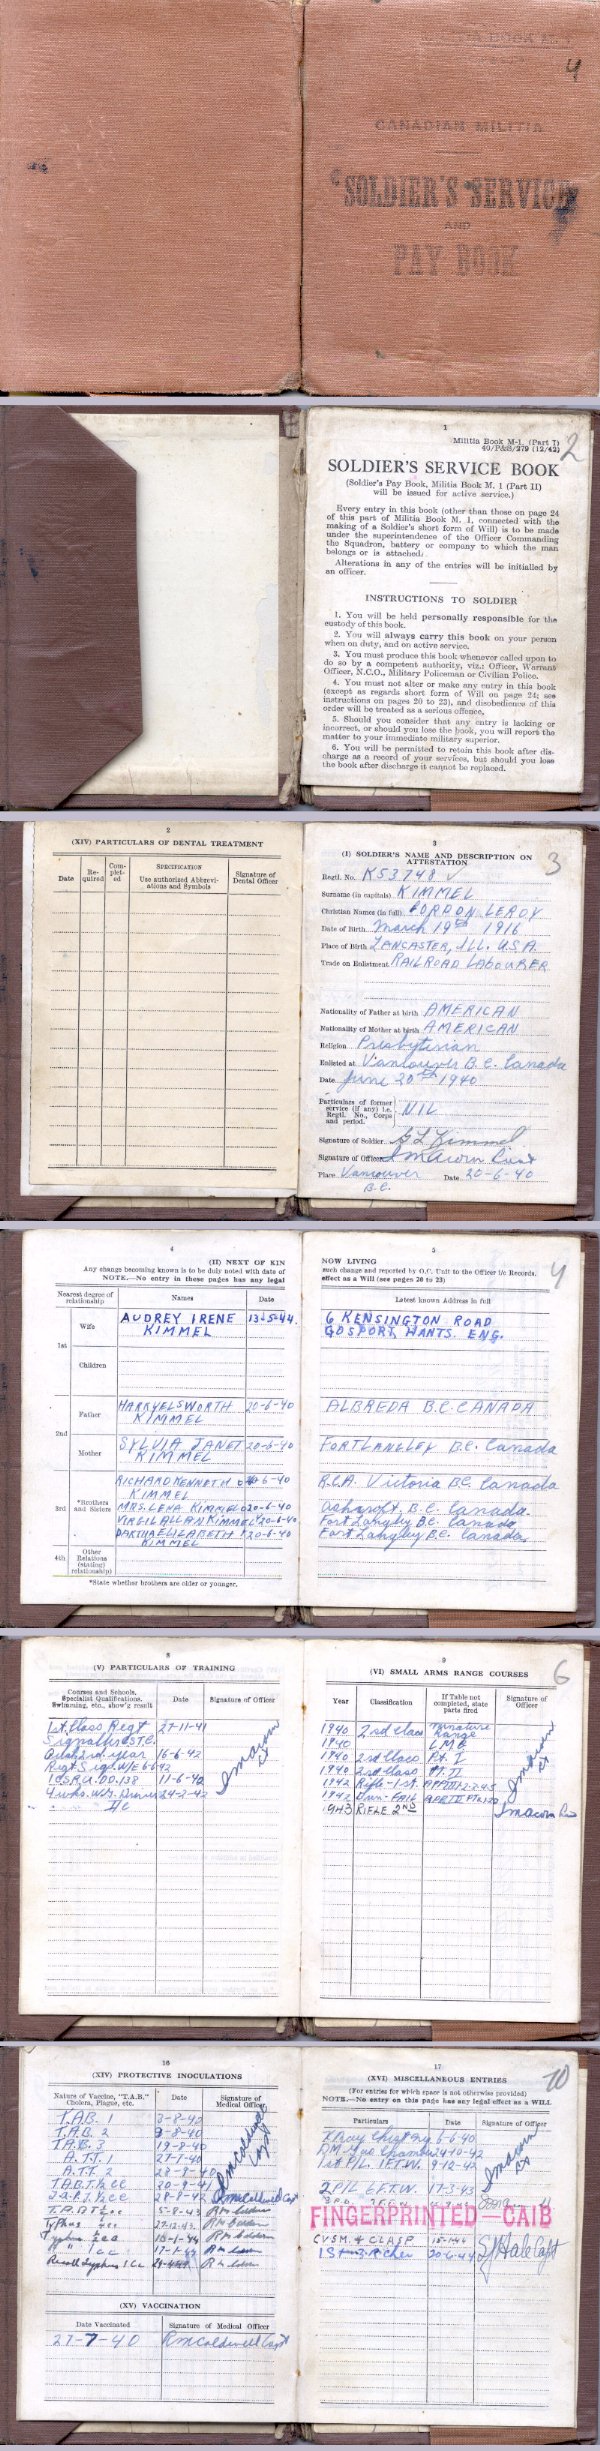 4
CANADIAN MILITIA
SOLDIER'S SERVICE
AND
PAY BOOK
1
2
Militia Book M-1. (Part I)
40/P&S/279 (12/42)
SOLDIER'S SERVICE BOOK
(Soldier's Pay Book, Militia Book M. 1 (Part II)
will be issued for active service.)
Every entry in this book (other than those on page 24
of this part of Militia Book M. 1, connected with the
making of a Soldier's short form of Will) is to be made
under the superintendence of the Officer Commanding
the Squadron, battery or company to which the man
belongs or is attached.
Alterations in any of the entries will be initialled by
an officer.
INSTRUCTIONS TO SOLDIER
1. You will be held personally responsible for the
custody of this book.
2. You will always carry this book on your person
when on duty, and on active service.
3. You must produce this book whenever called upon to
do so by a competent authority, viz.: Officer, Warrant
Officer, N.C.O., Military Policeman or Civilian Police.
4. You must not alter or make any entry in this book
(except as regards short form of Will on page 24; see
instructions on pages 20 to 23), and disobedience of this
order will be treated as a serious offence.
5. Should you consider that any entry is lacking or
incorrect, or should you lose the book, you will report the
matter to your immediate military superior.
6. You will be permitted to retain this book after dis-
charge as a record of your services, but should you lose
the book after discharge it cannot be replaced.
2
(XIV) PARTICULARS OF DENTAL TREATMENT
Date
Re-
quired
Com-
plet-
ed
SPECIFICATION
Use authorized Abbrevi-
ations and Symbols
Signature of
Dental Officer
3
3
(I) SOLDIER'S NAME AND DESCRIPTION ON
ATTESTATION
Regtl. No. K53748
Surname (in capitals) KIMMEL
Christian Names (in full) GORDON LEROY
Date of Birth March 19th 1916
Place of Birth LANCASTER, ILL. U.S.A.
Trade on Enlistment RAILROAD LABOURER
Nationality of Father at birth AMERICAN
Nationality of Mother at birth AMERICAN
Religion Presbyterian
Enlisted at Vancouver B.C. Canada
Date June 20th 1940
Particulars of former
service (if any) i.e.
Regtl. No., Corps
and period.
NIL
Signature of Soldier G L Kimmel
Signature of Officer
Place Vancouver B.C. Date 20-6-40
4
(II) NEXT OF KIN
Any change becoming known is to be duly noted with date of
NOTE.—No entry in these pages has any legal
Nearest degree of
relationship
Names
Date
1st
Wife
AUDREY IRENE KIMMEL
13-5-44.
Children
2nd
Father
HARRY ELSWORTH KIMMEL
20-6-40
Mother
SYLVIA JANET KIMMEL
20-6-40
3rd
*Brothers
and Sisters
RICHARD KENNETH KIMMEL
20-6-40
MRS. LENA KIMMEL
20-6-40
VIRGIL ALLAN KIMMEL
20-6-40
ELIZABETH KIMMEL
20-6-40
4th
Other
Relations
(stating
relationship)
*State whether brothers are older or younger.
5
4
NOW LIVING
such change and reported by O.C. Unit to the Officer i/c Records.
effect as a Will (see pages 20 to 23)
Latest known Address in full
6 KENSINGTON ROAD
GOSPORT, HANTS. ENG.
ALBREDA B.C. CANADA
FORT LANGLEY B.C. Canada
R.C.A. Victoria B.C. Canada
Ashcroft, B.C. Canada.
Fort Langley B.C. Canada
Fort Langley B.C. Canada
8
(V) PARTICULARS OF TRAINING
Courses and Schools,
Specialist Qualifications,
Swimming, etc., show'g result
Date
Signature of Officer
1st Class Regt
27-11-41
2nd year
16-6-42
11-6-42
24-2-42
9
6
(VI) SMALL ARMS RANGE COURSES
Year
Classification
If Table not
completed, state
parts fired
Signature of
Officer
1940 2nd Class Miniature Range
1940 L.M.G.
1940 2nd Class Pt. I
1940 2nd Class Pt. II
1942 Rifle-1st
1942
1943 RIFLE 2ND
16
(XIV) PROTECTIVE INOCULATIONS
Nature of Vaccine, "T.A.B."
Cholera, Plague, etc.
Date
Signature of
Medical Officer
T.A.B. 1
T.A.B. 2
T.A.B. 3 19-8-40
A.T.T. 1 27-7-40
A.T.T. 2 28-8-40
T.A.B.T. ½ cc
5-8-43
Typhus 27-12-43
(XV) VACCINATION
Date Vaccinated
Signature of Medical Officer
27-7-40 R M Caldwell Capt
17
10
(XVI) MISCELLANEOUS ENTRIES
(For entries for which space is not otherwise provided)
NOTE.—No entry on this page has any legal effect as a WILL
Particulars
Date
Signature of Officer
X Ray Chest
Gas Chamber 24-10-42
9-12-42
17-3-43
FINGERPRINTED—CAIB
CVSM & CLASP
20-6-44
S J Hale Capt